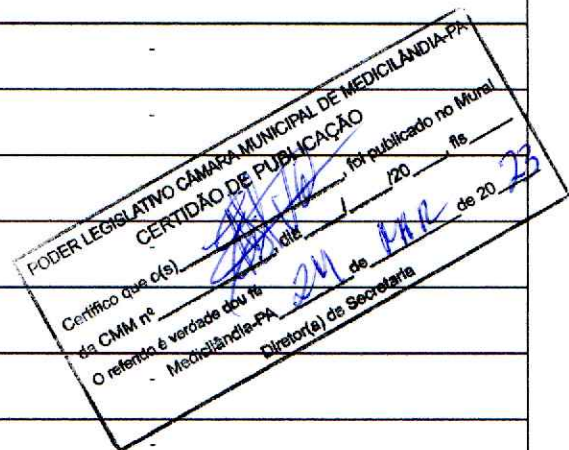 PODER LEGISLATIVO CÂMARA MUNICIPAL DE MEDICILÂNDIA-PA
CERTIDÃO DE PUBLICAÇÃO
Certifico que o(s) ______, foi publicado no Mural
da CMM nº ______, dia ___/___/20___ fls ___
O referido é verdade dou fé
Medicilândia-PA 24 de MAR de 20 23
Diretor(a) de Secretaria